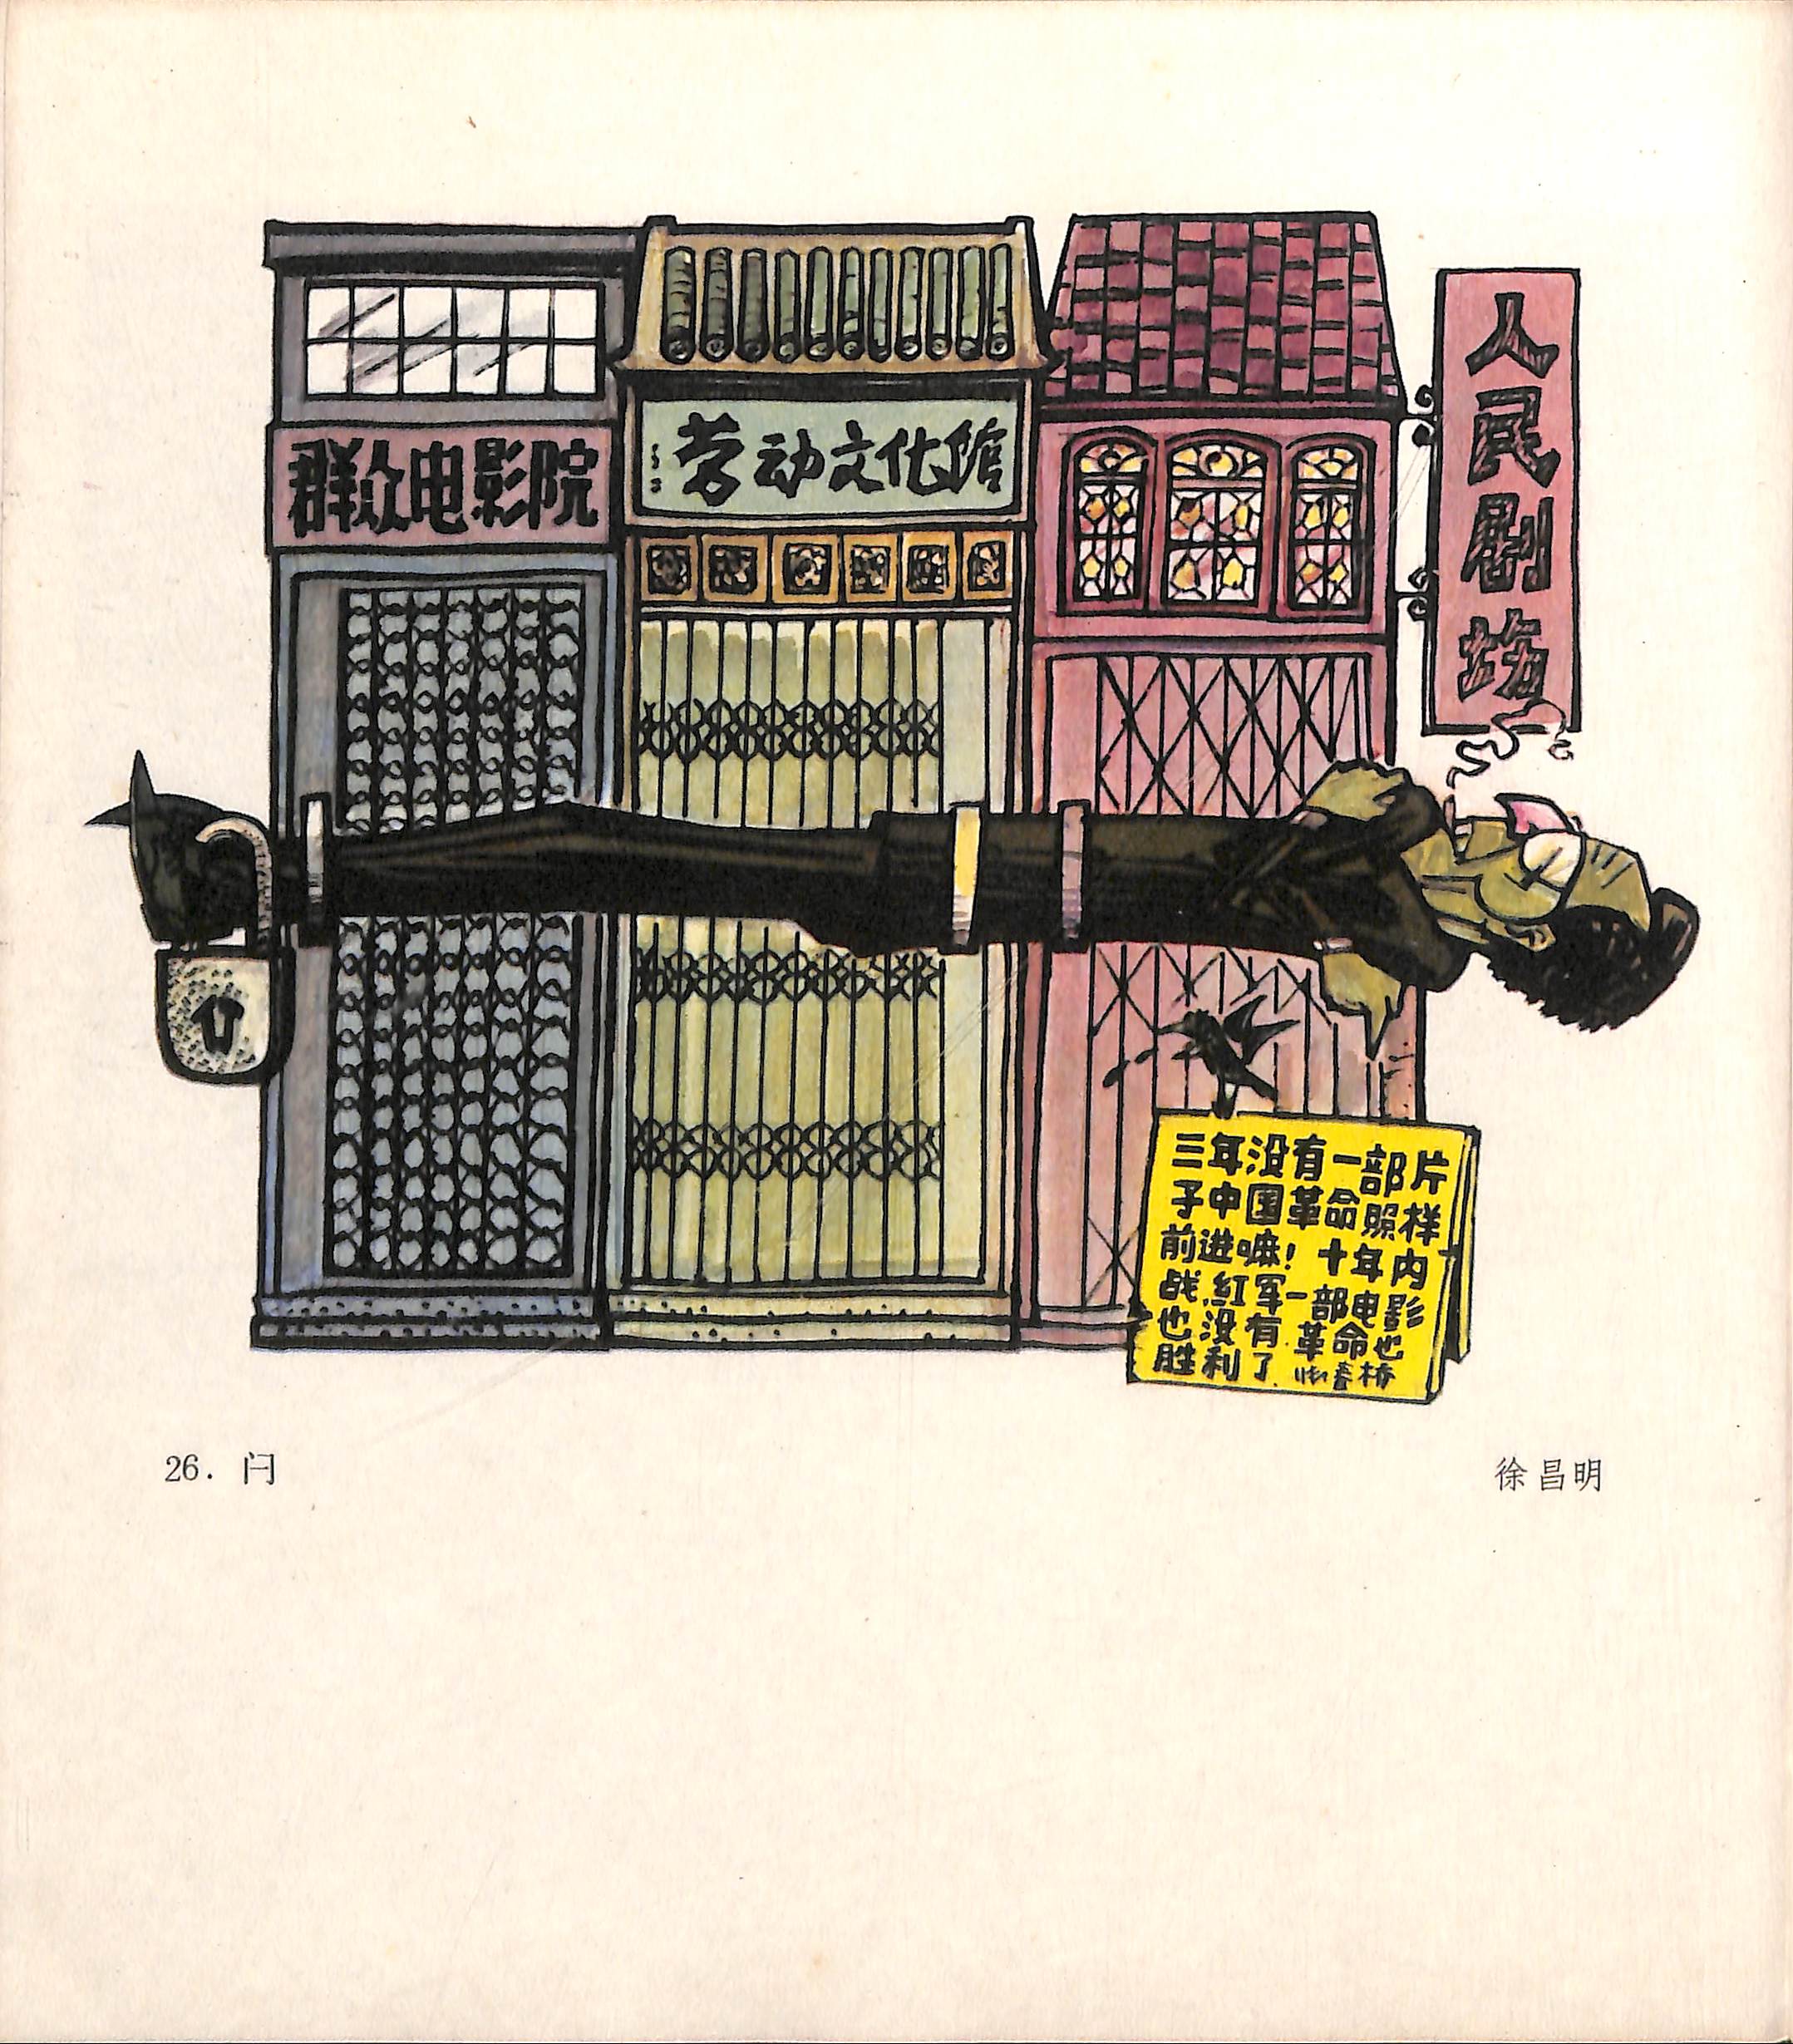 群众电影院
劳动文化馆
人民剧场
三年没有一部片
子中国革命照样
前进嘛！十年内
战红军一部电影
也没有革命也
胜利了.张春桥
26. 闩
徐昌明